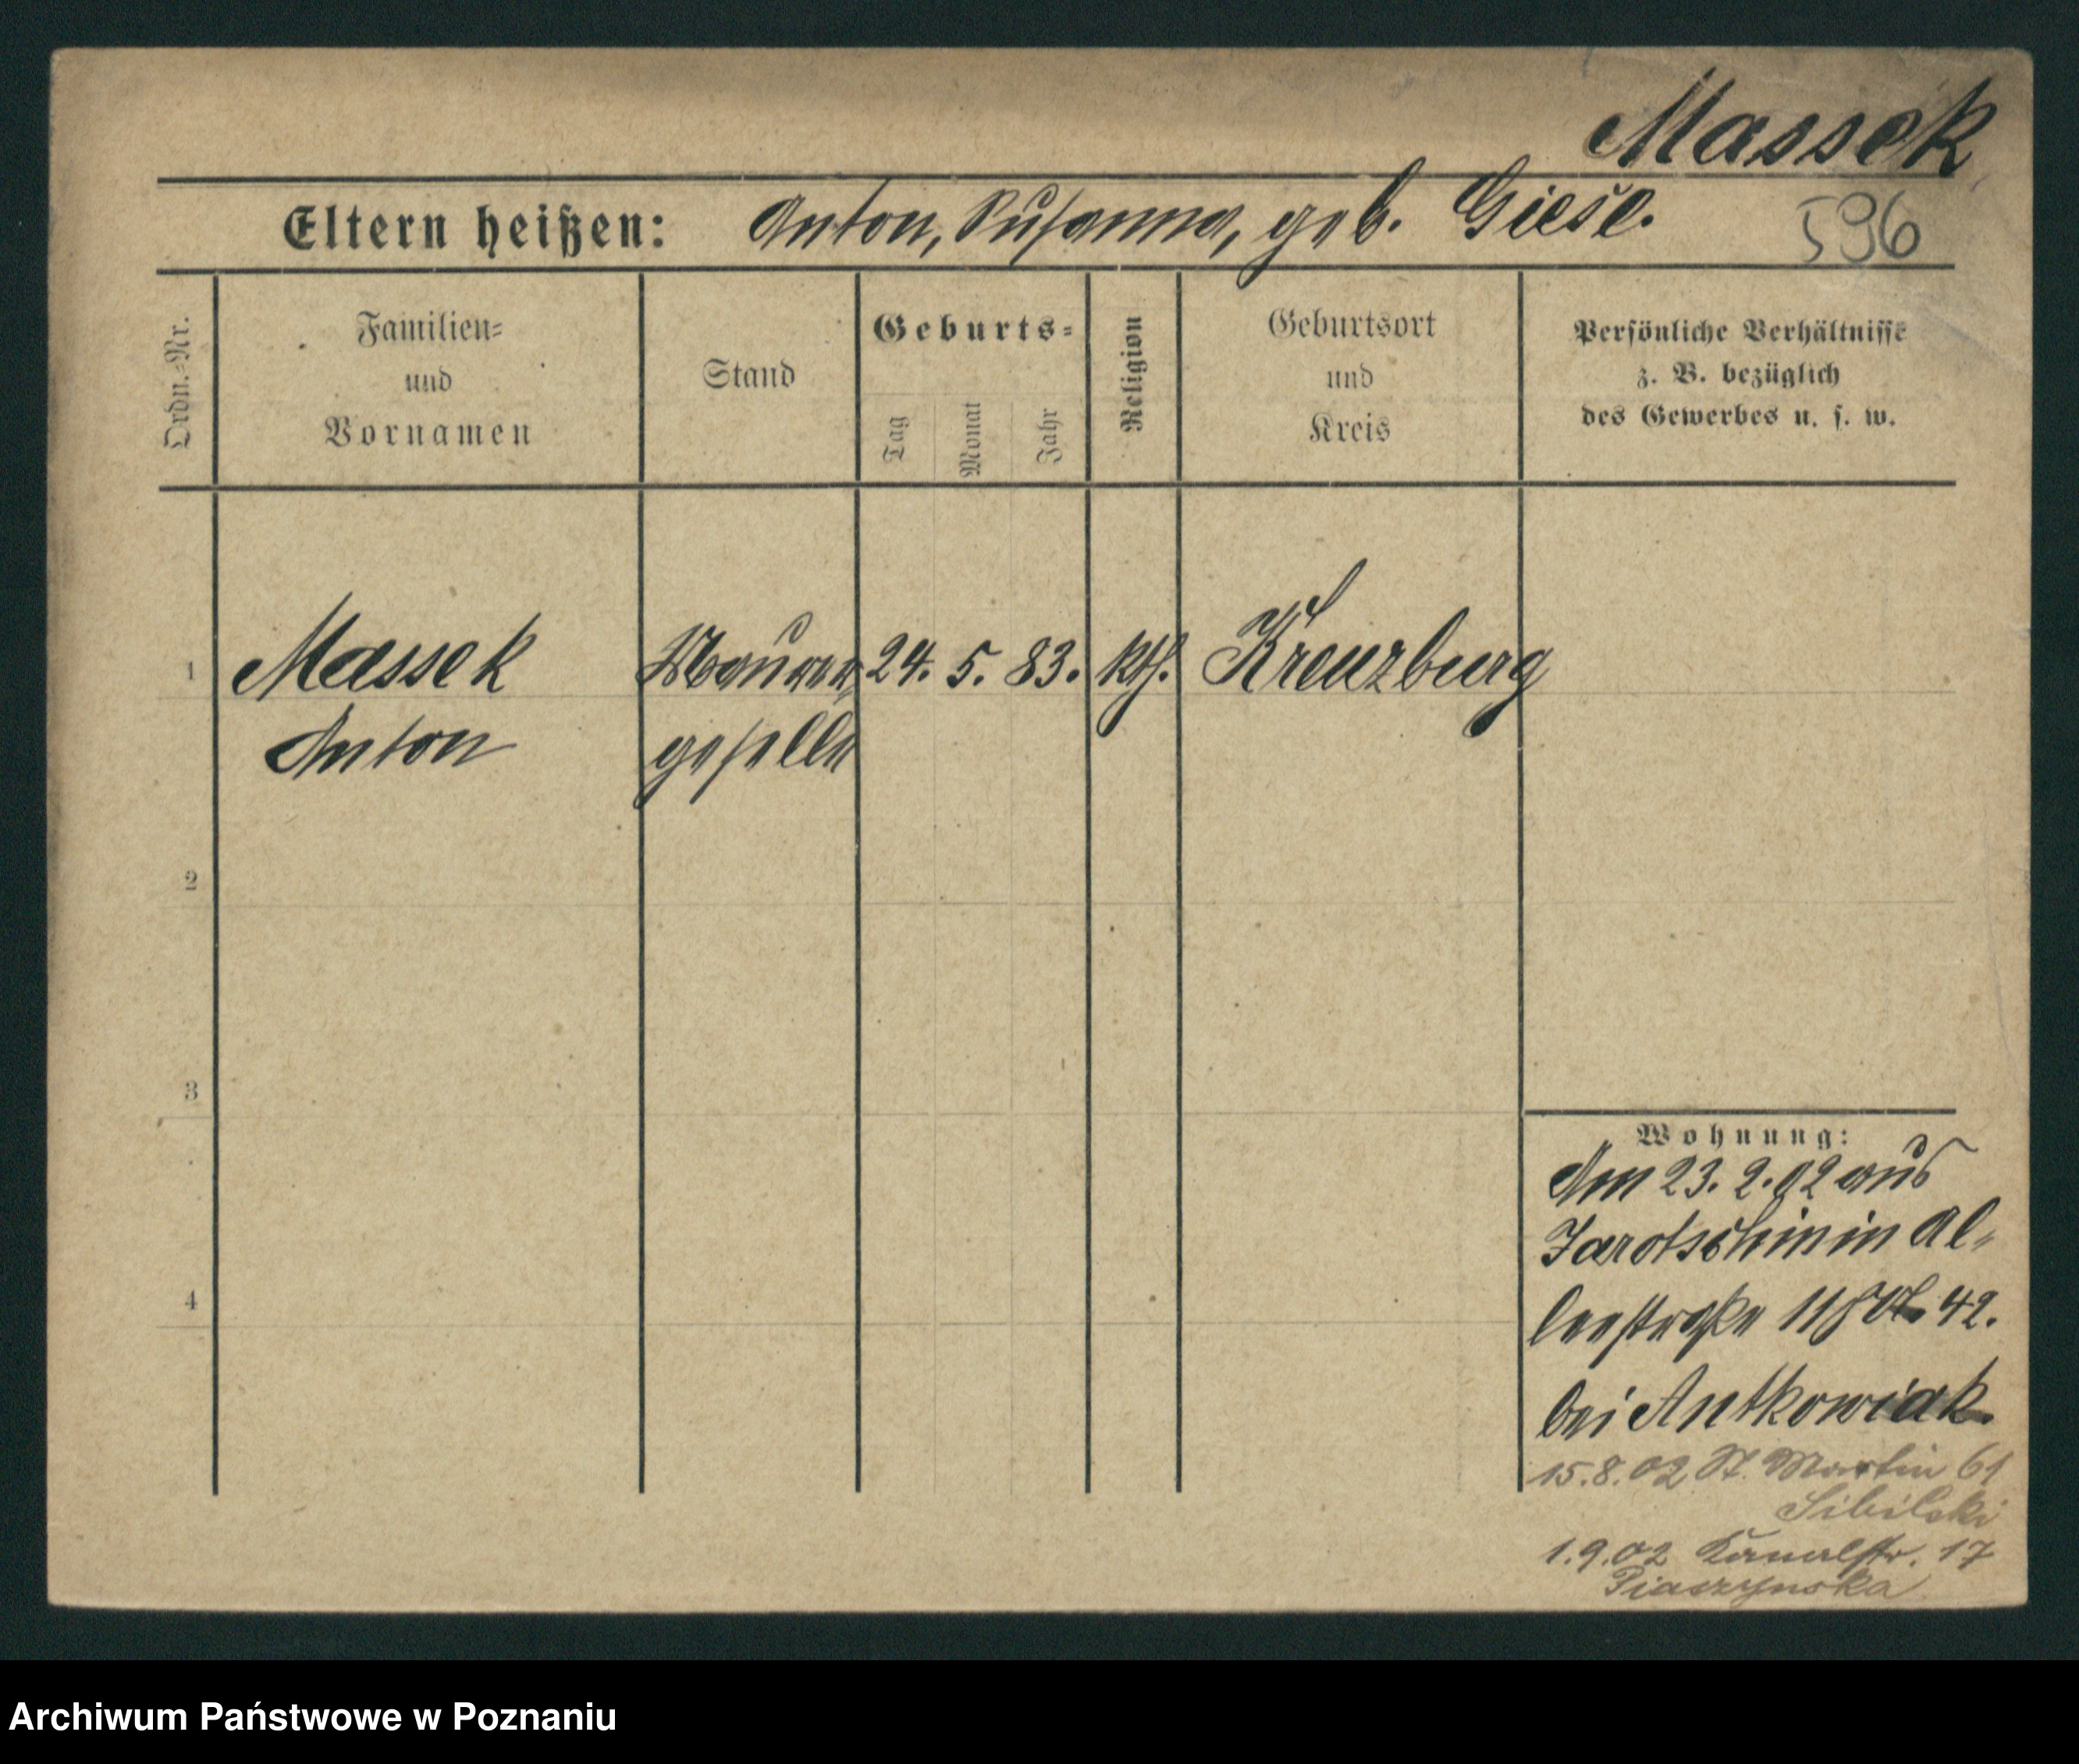 Massek
Eltern heißen: Anton, Susanna, geb. Giese.
596
Ordn.-Nr.
Familien-
und
Vornamen
Stand
Geburts-
Tag
Monat
Jahr
Religion
Geburtsort
und
Kreis
Persönliche Verhältnisse
z. B. bezüglich
des Gewerbes u. s. w.
1 Massek Maurer- 24. 5. 83. kth. Kreuzburg
Anton geselle
2
3
4
Wohnung:
Am 23. 2. 02 aus
Jarotschin in Al-
leestraße 11 42.
bei Antkowiak.
15.8.02 St. Martin 61
Sibilski
1.9.02 Kanalstr. 17
Piaszynska
Archiwum Państwowe w Poznaniu